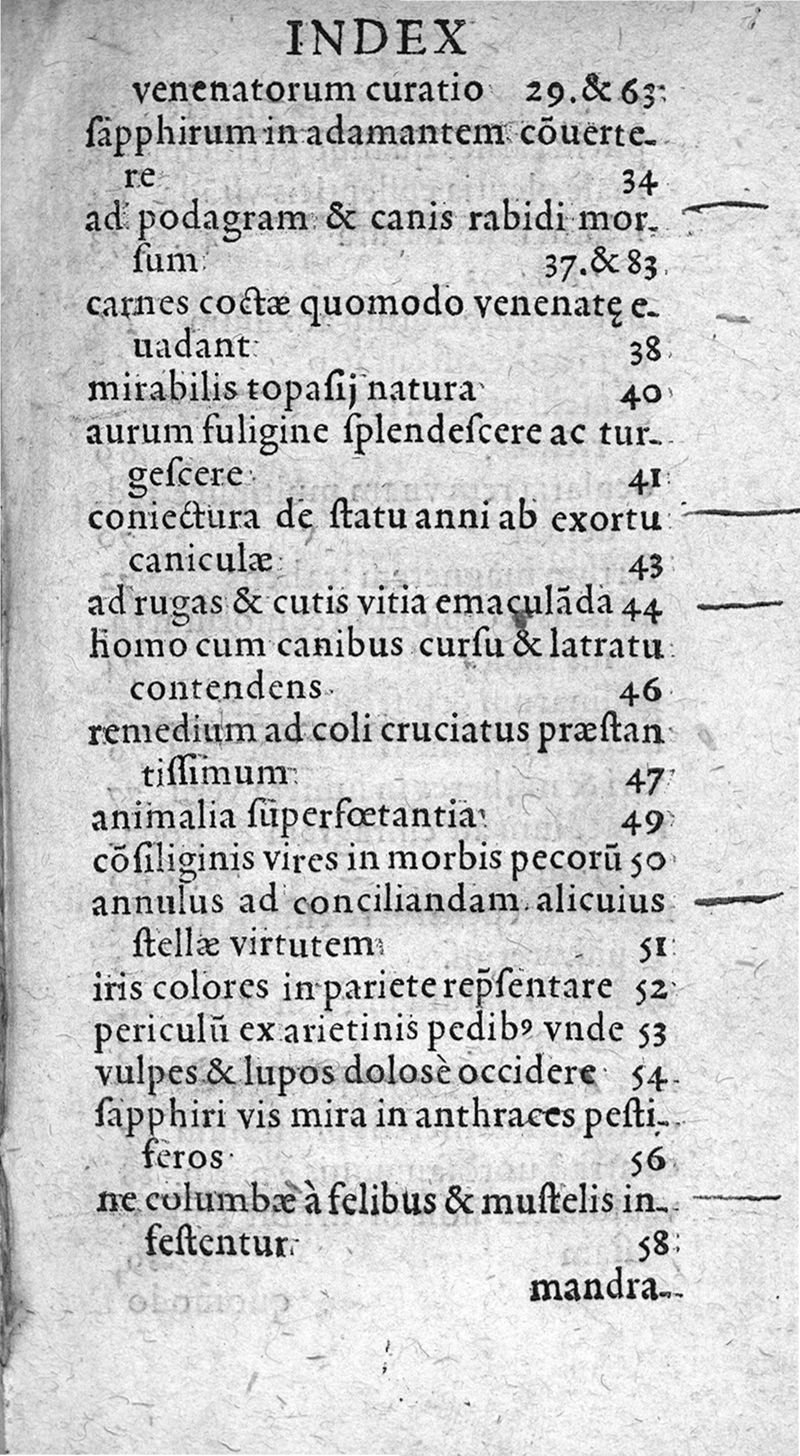 INDEX
venenatorum curatio 29. & 63
ſapphirum in adamantem cōuerte-
re 34
ad podagram & canis rabidi mor-
ſum 37. & 83
carnes coctæ quomodo venenatę e-
uadant 38
mirabilis topaſij natura 40
aurum fuligine ſplendeſcere ac tur-
geſcere 41
coniectura de ſtatu anni ab exortu
caniculæ 43
ad rugas & cutis vitia emaculāda 44
homo cum canibus curſu & latratu
contendens 46
remedium ad coli cruciatus præſtan
tiſſimum 47
animalia ſuperfœtantia 49
cōſiliginis vires in morbis pecorū 50
annulus ad conciliandam alicuius
ſtellæ virtutem 51
iris colores in pariete rep̃ſentare 52
periculū ex arietinis pedibꝰ vnde 53
vulpes & lupos dolosè occidere 54
ſapphiri vis mira in anthraces peſti-
feros 56
ne columbæ à felibus & muſtelis in-
feſtentur 58
mandra-